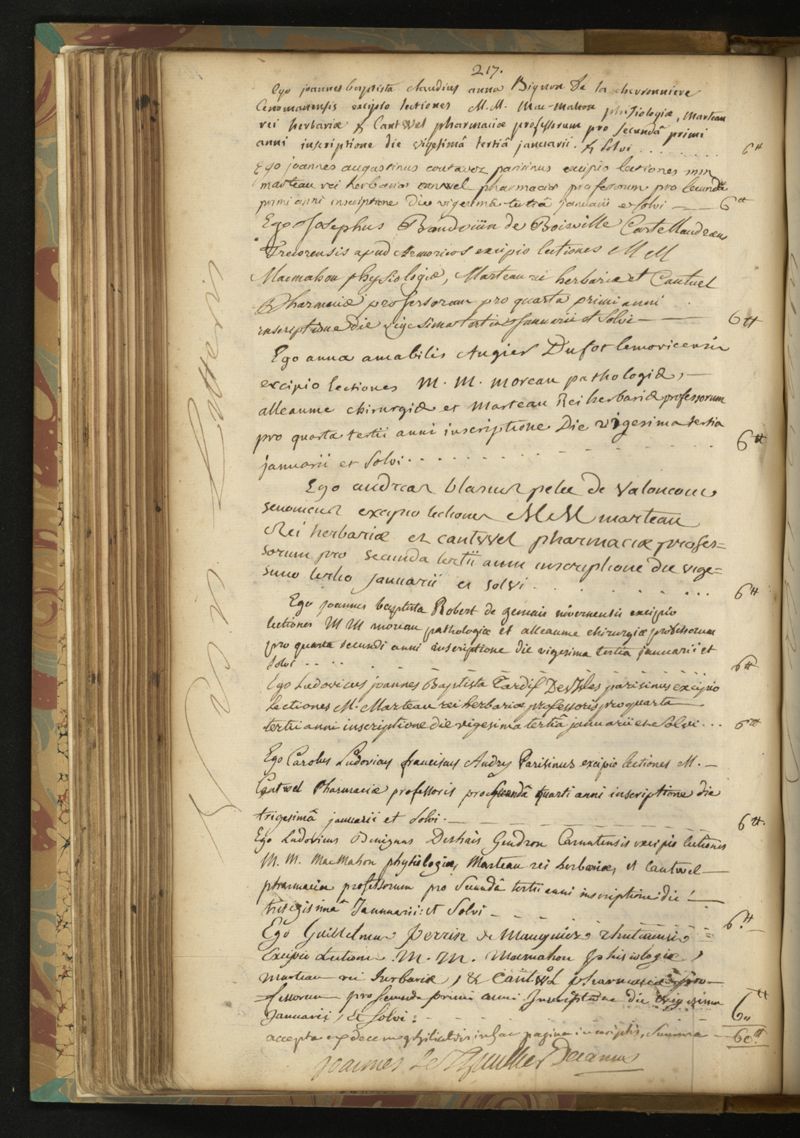 217.
Ego joannes baptista claudius anna Bignon De la chevronniere
Cenomanensis excipio lectiones M.M. Mac-mahon phisiologiæ, Marteau
rei herbariæ & Cantwel pharmaciæ professorum pro secundâ primi
anni inscriptione die vigesimâ tertiâ januarii. & solvi ........ 6tt
Ego joannes augustinus coutavoz parisinus excipio lectiones mm
marteau rei herbariæ cantwel pharmaciæ professorum pro secunda
primi anni inscriptione die vigesima tertia januarii et solvi — 6tt
Ego Josephus Baudouin de Boisville Castellaudren
Trecorensis apud Armoricos excipio lectiones MM
Macmahon physiologiæ, Marteau rei herbariæ et Cantwel
Pharmaciæ professorum pro quarta primi anni
inscriptione die vigesima tertia Januarii et solvi — 6tt
Ego anna amabilis Augier Dufot lemovicensis
excipio lectiones M. M. moreau pathologiæ, —
alleaume chirurgiæ et Marteau Rei herbariæ professorum
pro quarta tertii anni inscriptione Die vigesima tertia
januarii et solvi ........ 6tt
Ego andreas blasius pelée de Valoncour
senonicus excipio lectiones MM marteau
Rei herbariæ et cantwel pharmaciæ profes=
sorum pro secunda tertii anni inscriptione die vige=
simo tertio januarii et solvi ........ 6tt
Ego joannes baptista Robert de gennis nivernensis excipio
lectiones MM moreau pathologiæ et alleaume chirurgiæ professorum
pro quarta secundi anni inscriptione die vigesima tertia januarii et
solvi ........ 6tt
Ego Ludovicus joannes Baptista Tardif Desisles parisinus excipio
Lectiones M. Marteau rei herbariæ professoris pro quarta
tertii anni inscriptione die vigesima tertiâ januarii et solvi ... 6tt
Ego Carolus Ludovicus franciscus Andry Parisinus excipio lectiones M. —
Cantwel Pharmaciæ professoris pro secundâ quarti anni inscriptione die
trigesimâ januarii et solvi. — 6tt
Ego Ludovicus Benignus Deshais Gendron Carnutensis excipio lectiones
M. M. MacMahon physiologiæ, Marteau rei herbariæ, et Cantwel —
pharmaciæ professorum pro secundâ tertii anni inscriptione die —
trigesimâ Januarii et solvi — 6tt
Ego Guillelmus Perrin de
Excipio Lectiones M. M. Macmahon phisiologiæ,
marteau rei herbariæ, & Cantwel pharmaciæ pro-
fessorum pro secunda primi anni Inscriptione die trigesima
Januarii, et solvi: 6tt
accepta ex decem philiatris in hac pagina inscriptis, summa — 60tt
joannes Le Thieullier Decanus